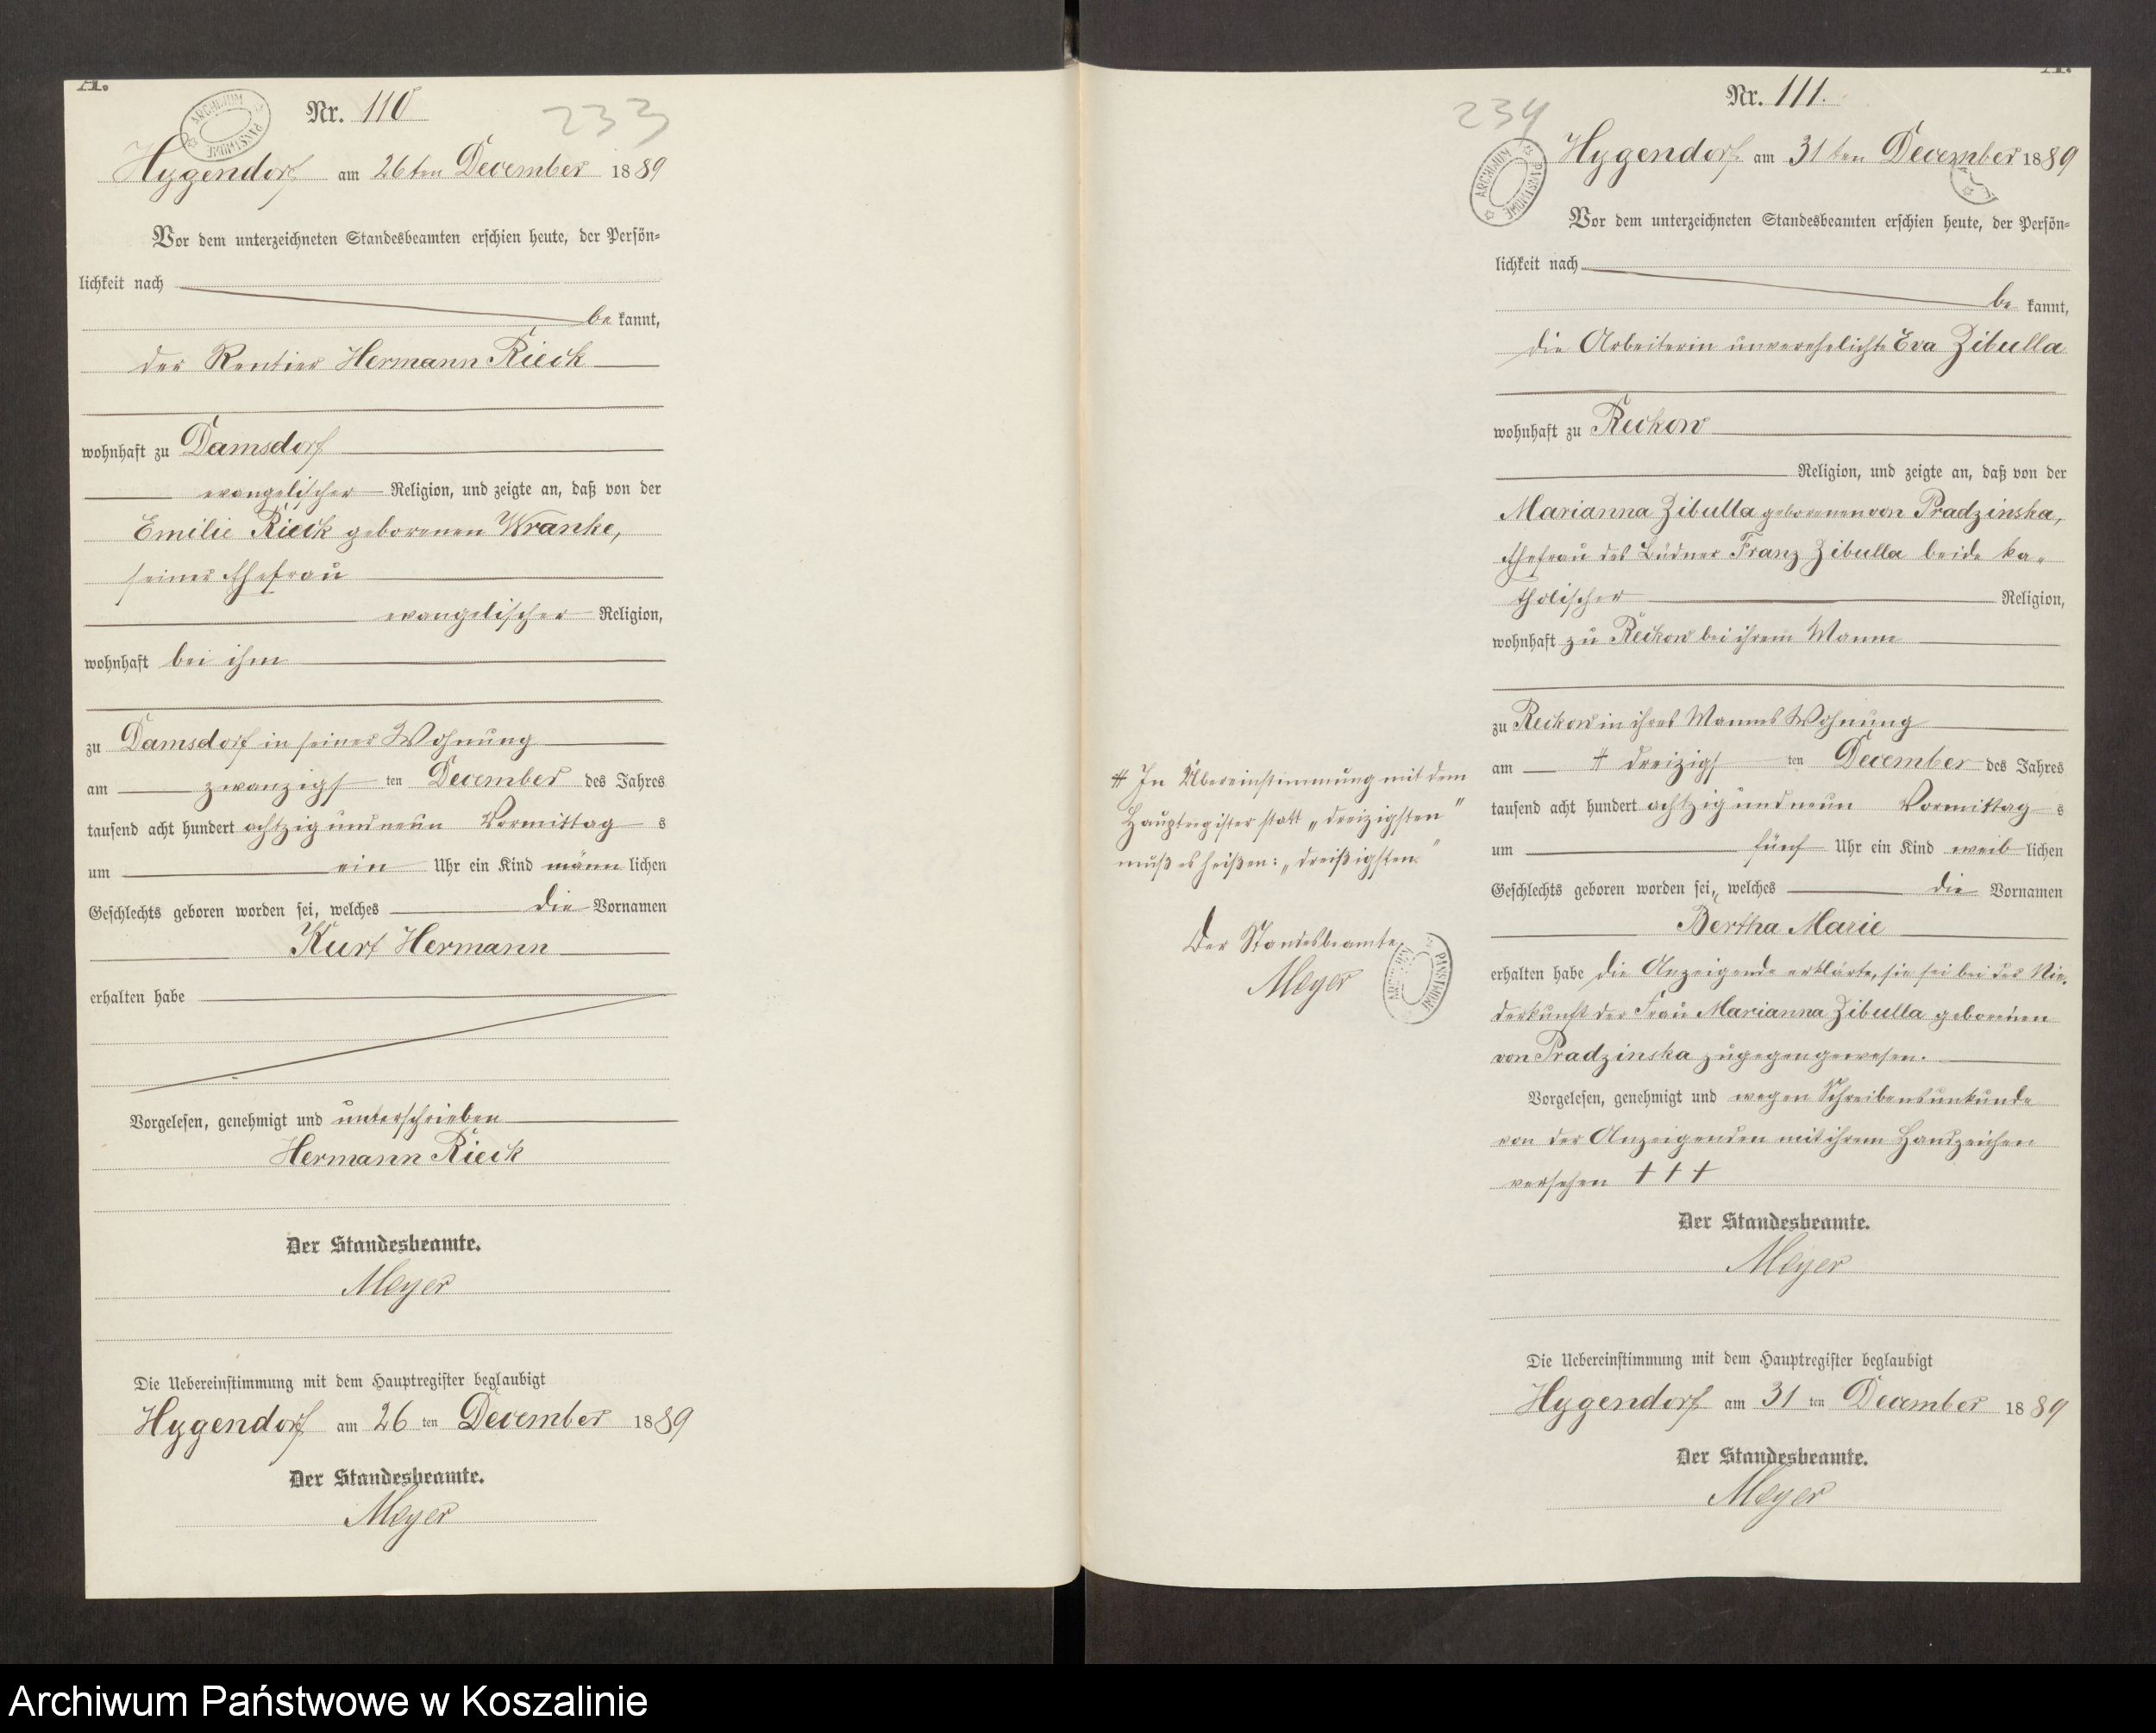 A.
Nr. 110
233
Hygendorf am 26ten December 1889
Vor dem unterzeichneten Standesbeamten erschien heute, der Persön-
lichkeit nach
be kannt,
der Rentier Hermann Rieck
wohnhaft zu Damsdorf
evangelischer Religion, und zeigte an, daß von der
Emilie Rieck geborenen Wranke,
seiner Ehefrau
evangelischer Religion,
wohnhaft bei ihm
zu Damsdorf in seiner Wohnung
am zwanzigsten December des Jahres
tausend acht hundert achtzig und neun Vormittag s
um ein Uhr ein Kind männ lichen
Geschlechts geboren worden sei, welches die Vornamen
Kurt Hermann
erhalten habe
Vorgelesen, genehmigt und unterschrieben
Hermann Rieck
Der Standesbeamte.
Meyer
Die Uebereinstimmung mit dem Hauptregister beglaubigt
Hygendorf am 26 ten December 1889
Der Standesbeamte.
Meyer
A.
Nr. 111.
234
Hygendorf am 31ten December 1889
Vor dem unterzeichneten Standesbeamten erschien heute, der Persön-
lichkeit nach
be kannt,
die Arbeiterin unverehelichte Eva Zibulla
wohnhaft zu Reckow
Religion, und zeigte an, daß von der
Marianna Zibulla geborenen von Pradzinska,
Ehefrau des Büdner Franz Zibulla beide ka-
tholischer Religion,
wohnhaft zu Reckow bei ihrem Manne
zu Reckow in ihres Mannes Wohnung
am ⧺ dreizigsten December des Jahres
tausend acht hundert achtzig und neun Vormittag s
um fünf Uhr ein Kind weib lichen
Geschlechts geboren worden sei, welches die Vornamen
Bertha Marie
erhalten habe die Anzeigende erklärte, sie sei bei der Nie-
derkunft der Frau Marianna Zibulla geborenen
von Pradzinska zugegen gewesen.
Vorgelesen, genehmigt und wegen Schreibensunkunde
von der Anzeigenden mit ihrem Handzeichen
versehen † † †
Der Standesbeamte.
Meyer
Die Uebereinstimmung mit dem Hauptregister beglaubigt
Hygendorf am 31 ten December 1889
Der Standesbeamte.
Meyer
⧺ In Übereinstimmung mit dem
Hauptregister statt „dreizigsten"
muß es heißen: „dreißigsten."
Der Standesbeamte,
Meyer
ARCHIWUM PAŃSTWOWE
Archiwum Państwowe w Koszalinie